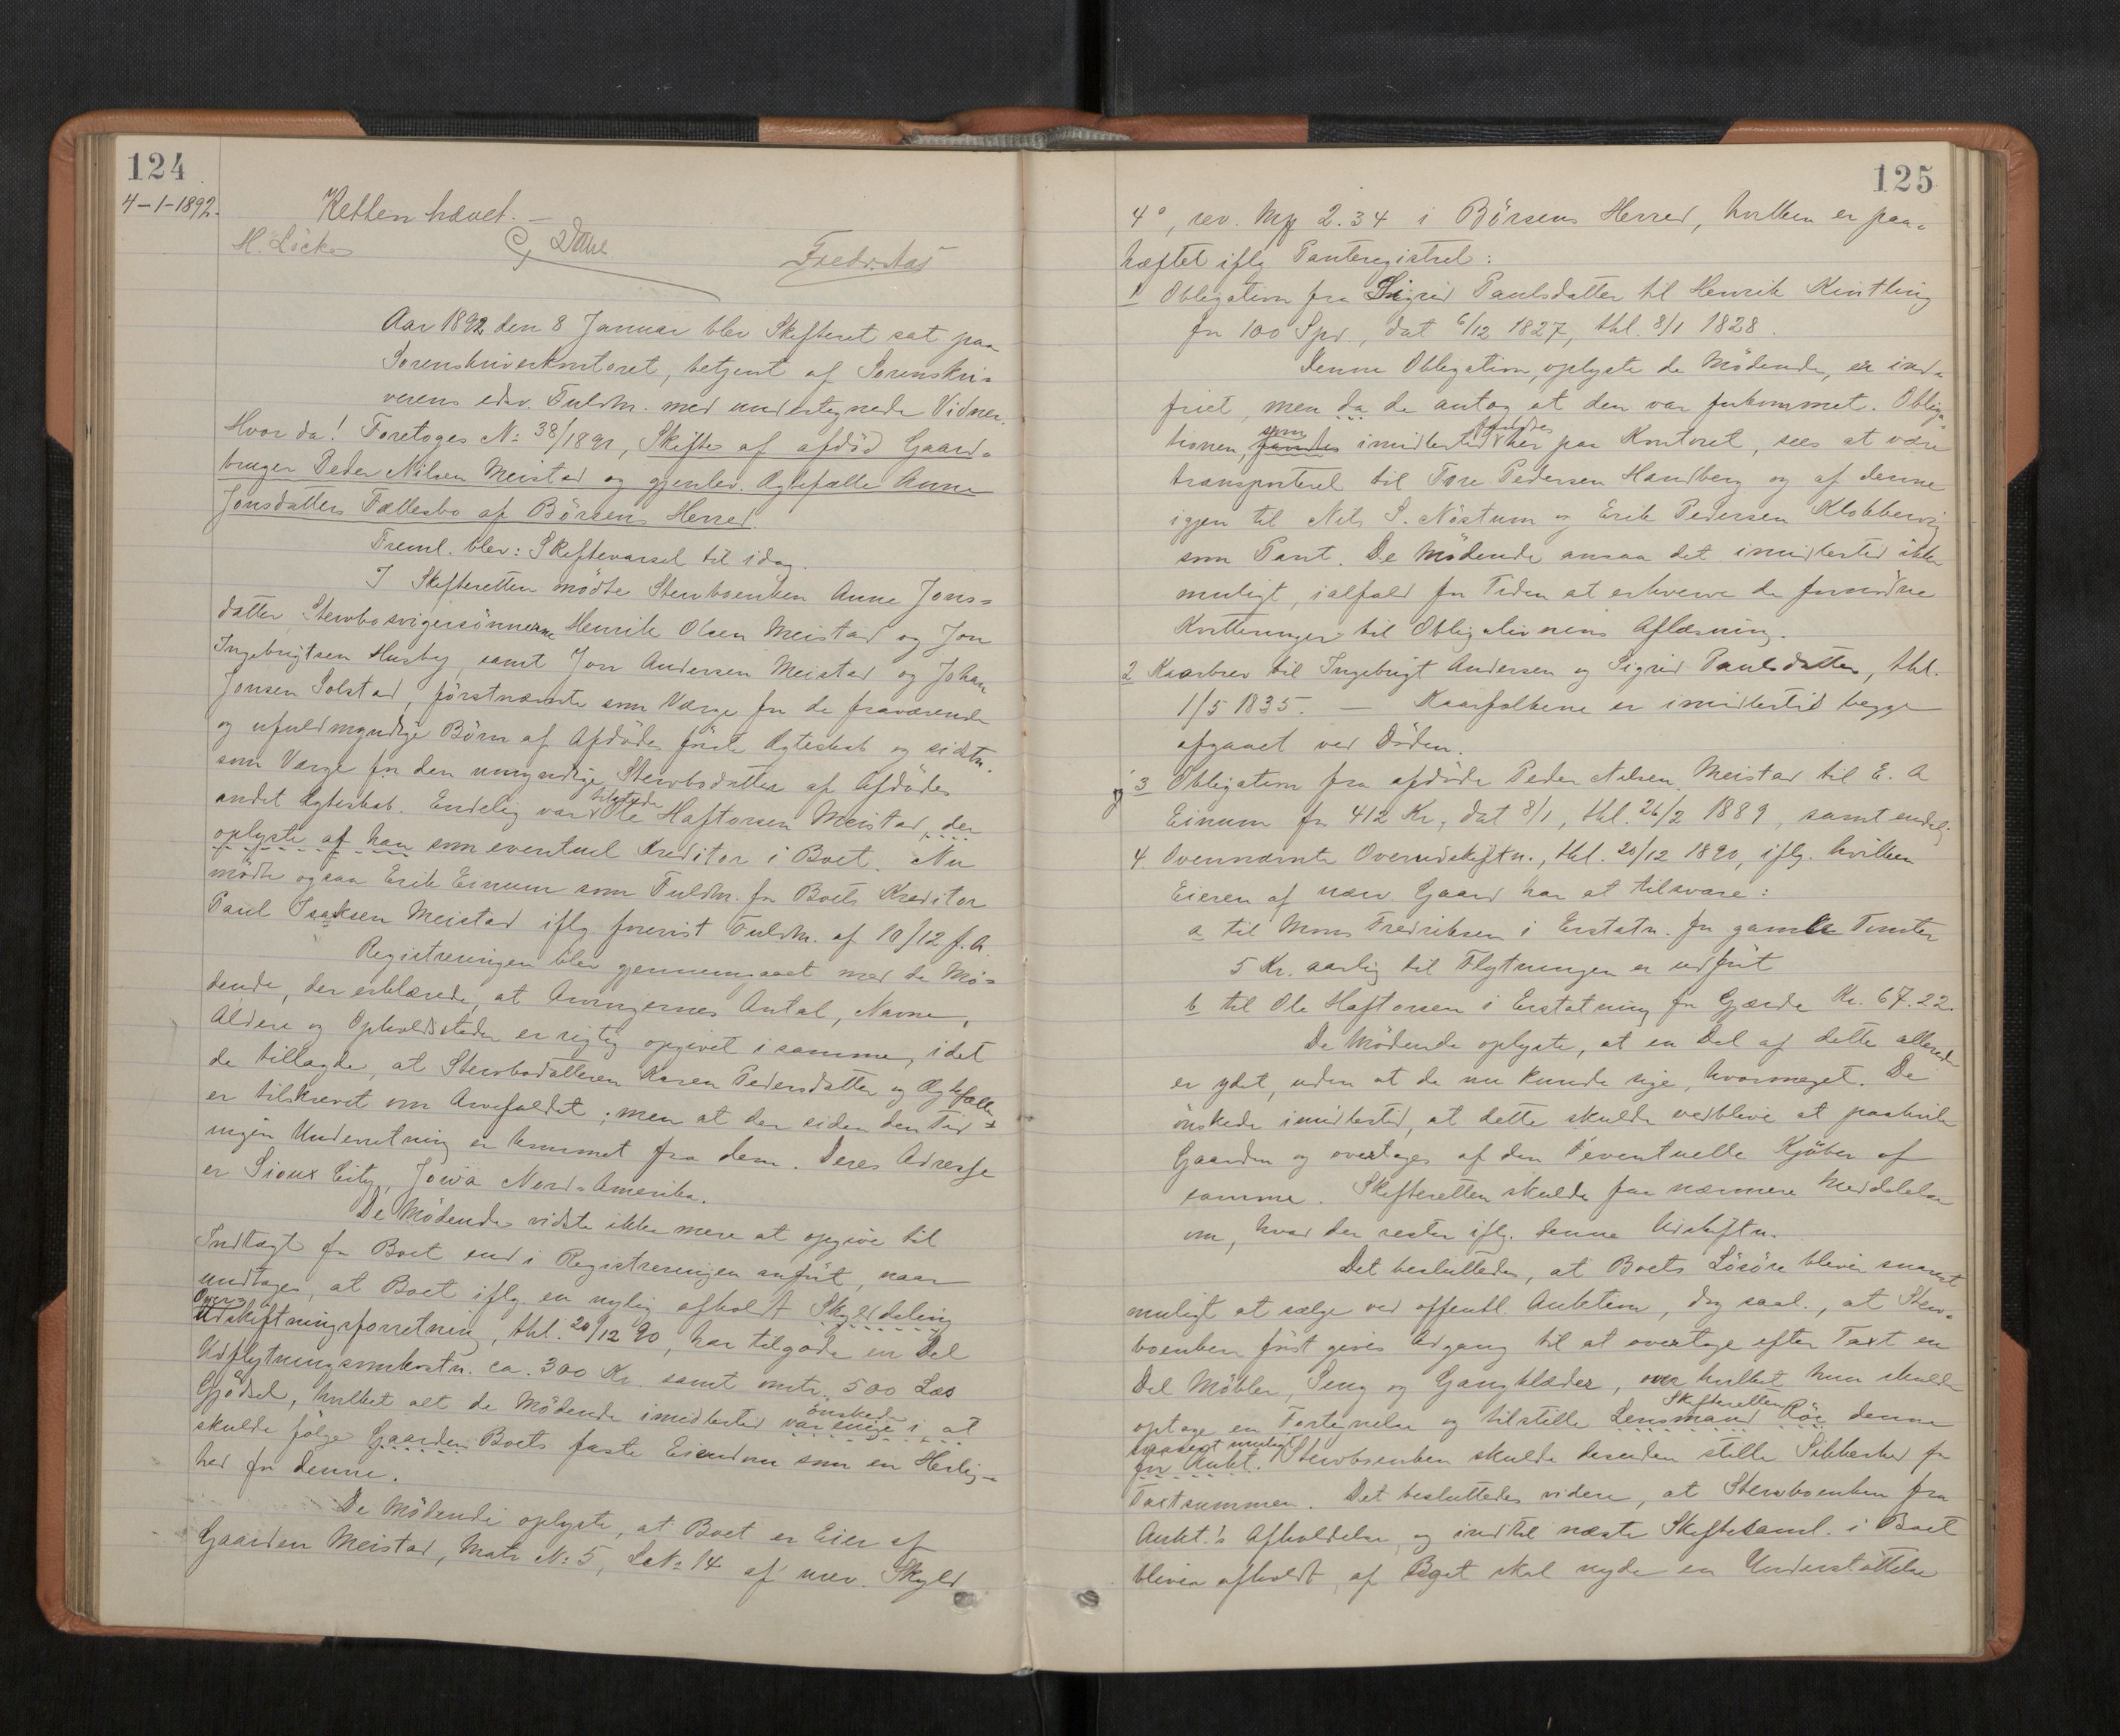 124
4-1-1892.
Retten hævet. –
H. Löcke
C. Dahl
Fredr. Aas
Aar 1892 den 8 Januar blev Skifteret sat paa
Sorenskriverkontoret, betjent af Sorenskri-
verens edsv. Fuldm. med undertegnede Vidner.
Hvor da! Foretoges No 38/1891, Skifte af afdöd Gaard-
bruger Peder Nilsen Meistad og gjenlev. Ægtefælle Anne
Jonsdatters Fællesbo af Börsens Herred.
Freml. blev: Skiftevarsel til idag.
I Skifteretten mödte Sterboenken Anne Jons-
datter, Stervbosvigersönnerne Henrik Olsen Meistad og Jon
Ingebrigtsen Husby, samt Jon Andersen Meistad og Johan
Jonsen Solstad, förstnævnte som Værge for de fraværende
og ufuldmyndige Börn af Afdödes förste Ægteskab og sidstn.
som Værge for den umyndige Stervbodatter af Afdödes
andet Ægteskab. Endelig var tilstede Ole Haftorsen Meistad, der
oplyste af han som eventuel Kreditor i Boet. Nu
mödte ogsaa Erik Einum som Fuldm. for Boets Kreditor
Paul Isaksen Meistad iflg. forevist Fuldm. af 10/12 f. A.
Registreringen blev gjennemgaaet med de Mö-
dende, der erklærede, at Arvingernes Antal, Navne,
Aldere og Opholdssteder er rigtig opgivet i samme, idet
de tillagde, at Stervbodatteren Karen Pedersdatter og Ægtefælle
er tilskrevet om Arvefaldet; men at der siden den Tid
ingen Underretning er kommet fra dem. Deres Adresse
er Sioux City, Jowa Nord-Amerika.
De Mödende vidste ikke mere at opgive til
Indtægt for Boet end i Registreringen anfört, naar
undtages, at Boet iflg. en nylig afholdt Skylddeling
Over-
Udskiftningsforretning, thl. 20/12 90, har tilgode en Del
Udflytningsomkostn. ca. 300 Kr. samt omtr. 500 Læs
Gjödsel, hvilket alt de Mödende imidlertid var enige i at
önskede
skulde fölge Gaarden Boets faste Eiendom som en Herlig-
hed for denne.
De Mödende oplyste, at Boet er Eier af
Gaarden Meistad, Matr No 5, LNo 14 af urev. Skyld
125
4°, rev. Mk 2.34 i Börsens Herred, hvilken er paa-
hæftet iflg Panteregistret:
1 Obligation fra Sigrid Paulsdatter til Henrik Kintling
for 100 Spd., dat 6/12 1827, thl. 8/1 1828.
Denne Obligation, oplyste de Mödende, er ind-
friet, men da de antog at den var forkommet. Obliga-
tionen, som fandtes imidlertid fandtes her paa Kontoret, sees at være
transporteret til Tore Pedersen Handberg og af denne
igjen til Nils S. Nöstum og Erik Pedersen Klokkervig
som Pant. De Mödende ansaa det imidlertid ikke
muligt, ialfald for Tiden at erhverve de fornödne
Kvitteringer til Obligationens Aflæsning.
2 Kaarbrev til Ingebrigt Andersen og Sigrid Paulsdatter, thl.
1/5 1835. – Kaarfolkene er imidlertid begge
afgaaet ved Döden.
3 Obligation fra afdöde Peder Nilsen Meistad til E. A
Einum for 412 Kr., dat 8/1, thl. 26/2 1889, samt endelig
4. Ovennævnte Overudskiftn., thl. 20/12 1890, iflg. hvilken
Eieren af nærv. Gaard har at tilsvare:
a til Mons Fredriksen i Erstatn. for gamle Tomter
5 Kr. aarlig til Flytningen er udfört
b til Ole Haftorsen i Erstatning for Gjærde Kr. 67.22.
De Mödende oplyste, at en Del af dette allerede
er ydet, uden at de nu kunde sige, hvormeget. De
önskede imidlertid, at dette skulde vedblive at paahvile
Gaarden og overtages af den eventuelle Kjöber af
samme. Skifteretten skulde faa nærmere Meddelelse
om, hvad der rester iflg. denne Udskiftn.
Det besluttedes, at Boets Lösöre bliver snarest
muligt at sælge ved offentl. Auktion, dog saal., at Sterv-
boenken först gives Adgang til at overtage efter Taxt en
Del Möbler, Seng og Gangklæder, over hvilket hun skulde
optage en Fortegnelse og tilstille Lensmand Röe denne
Skifteretten
snarest muligt
för Aukt. Stervboenken skulde desuden stille Sikkerhed for
Taxtsummen. Det besluttedes videre, at Stervboenken fra
Aukt.'s Afholdelse og indtil næste Skiftesaml. i Boet
bliver afholdt, af Boet skal nyde en Understöttelse